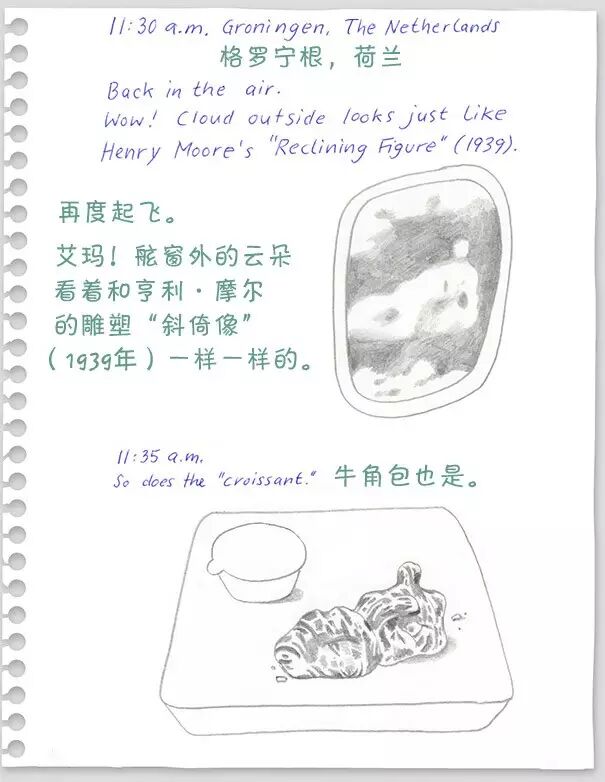 11:30 a.m. Groningen, The Netherlands
格罗宁根，荷兰
Back in the air.
Wow! Cloud outside looks just like
Henry Moore's "Reclining Figure" (1939).
再度起飞。
艾玛！舷窗外的云朵
看着和亨利·摩尔
的雕塑“斜倚像”
（1939年）一样一样的。
11:35 a.m.
So does the "croissant."
牛角包也是。